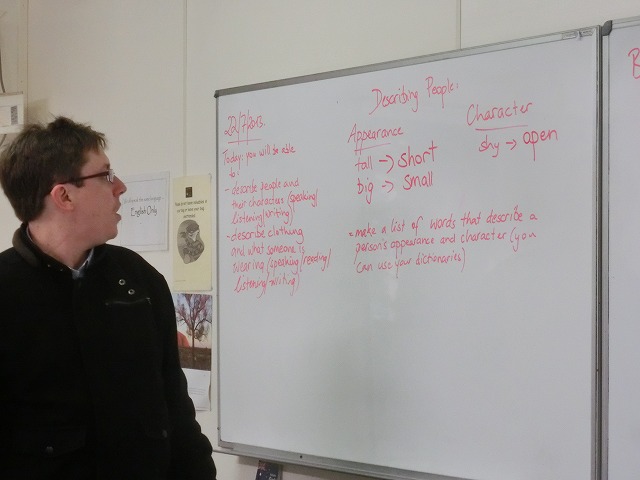 Describing People:
22/7/2013.
Today: you will be able
to:
- describe people and
their character (speaking/
listening/writing)
- describe clothing
and what someone is
wearing (speaking/reading/
listening/writing)
Appearance
tall → short
big → small
Character
shy → open
= make a list of words that describe a
person's appearance and character (you
can use your dictionaries)
English Only
B